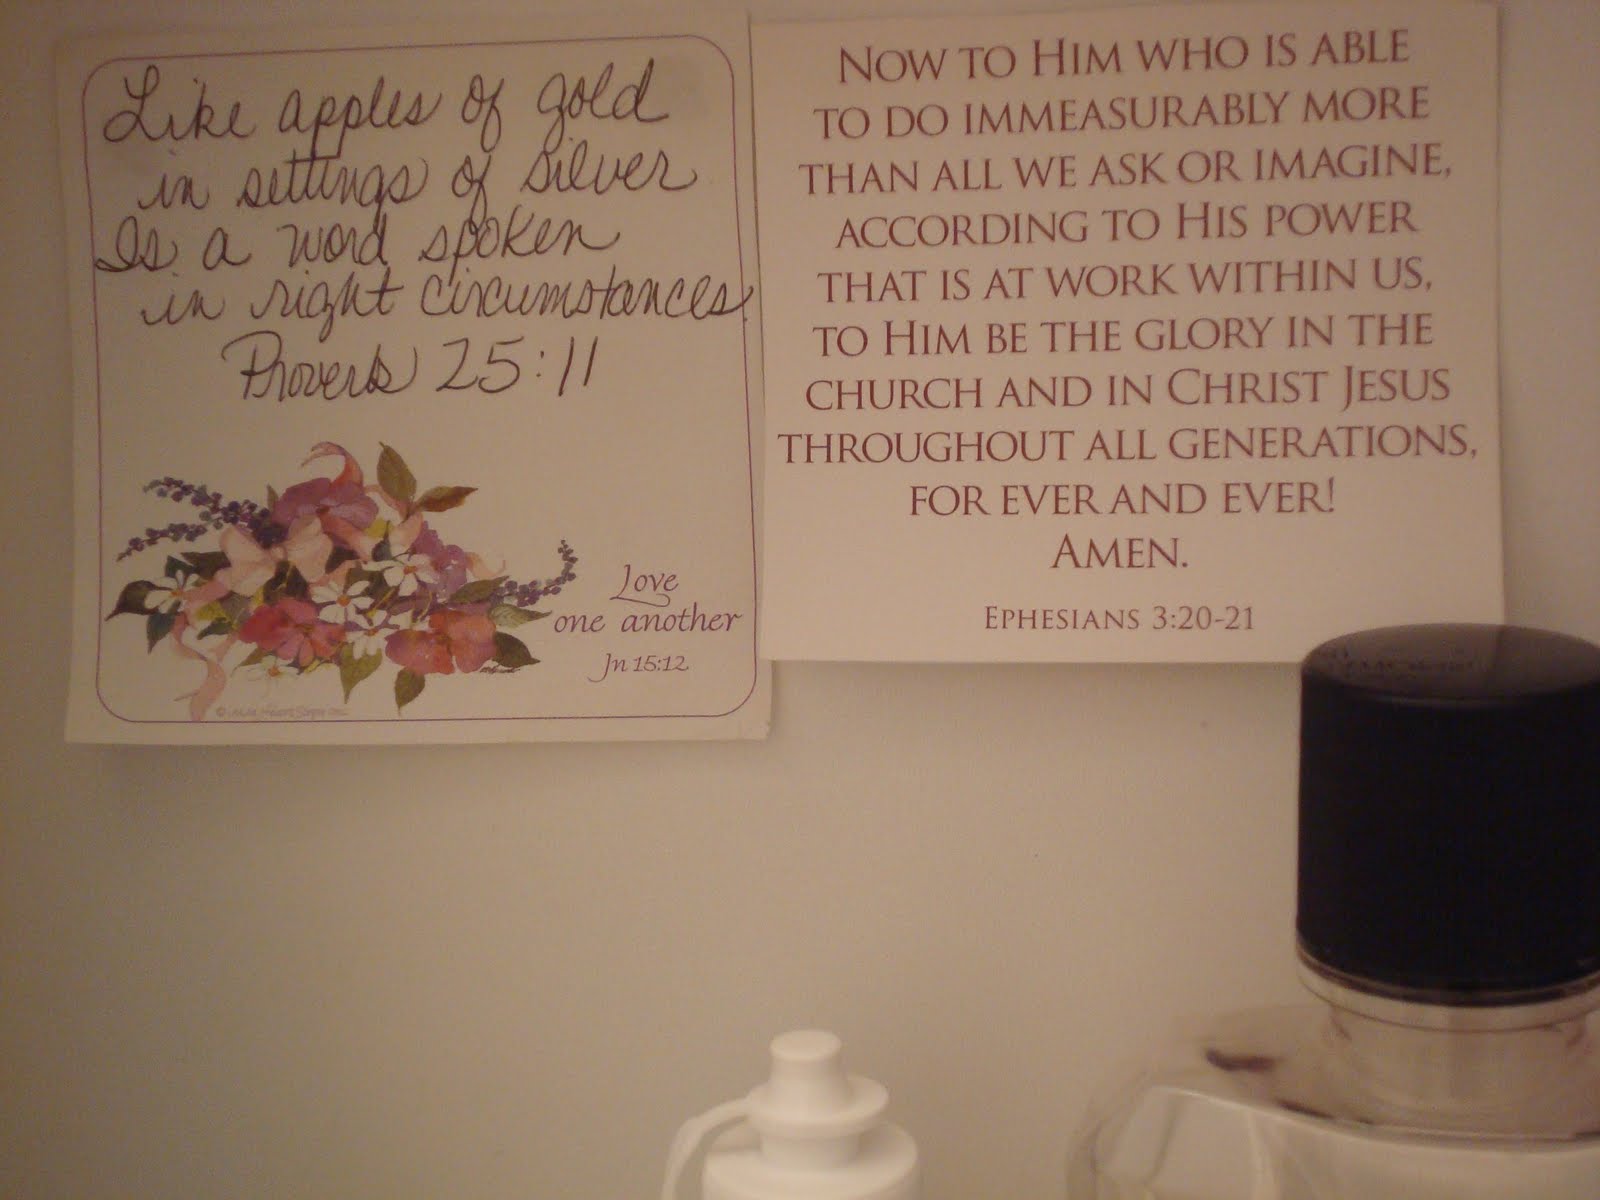 Like apples of gold
in settings of silver
Is a word spoken
in right circumstances.
Proverbs 25:11
Love
one another
Jn 15:12
NOW TO HIM WHO IS ABLE
TO DO IMMEASURABLY MORE
THAN ALL WE ASK OR IMAGINE,
ACCORDING TO HIS POWER
THAT IS AT WORK WITHIN US,
TO HIM BE THE GLORY IN THE
CHURCH AND IN CHRIST JESUS
THROUGHOUT ALL GENERATIONS,
FOR EVER AND EVER!
AMEN.
EPHESIANS 3:20-21